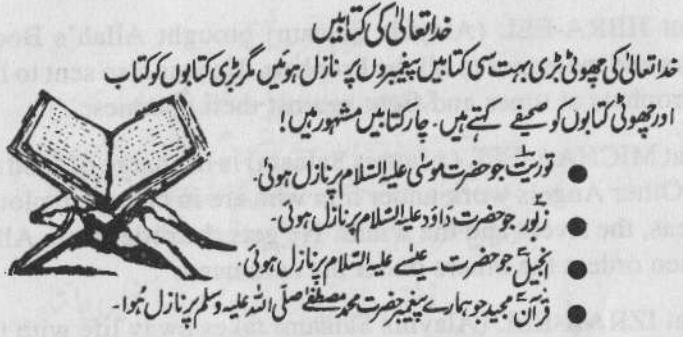 خدا تعالیٰ کی کتابیں
خدا تعالیٰ کی چھوٹی بڑی بہت سی کتابیں پیغمبروں پر نازل ہوئیں مگر بڑی کتابوں کو کتاب
اور چھوٹی کتابوں کو صحیفے کہتے ہیں۔ چار کتابیں مشہور ہیں!
توریت جو حضرت موسٰی علیہ السلام پر نازل ہوئی۔
زبور جو حضرت داؤد علیہ السلام پر نازل ہوئی۔
انجیل جو حضرت عیسٰے علیہ السلام پر نازل ہوئی۔
قرآن مجید جو ہمارے پیغمبر حضرت محمد مصطفٰے صلی اللہ علیہ وسلم پر نازل ہوا۔